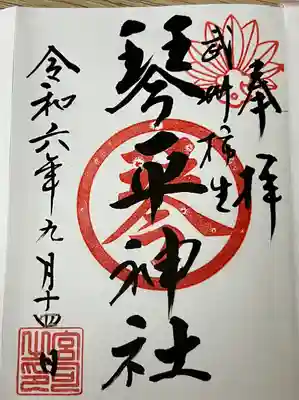 奉拝
武州柿生
琴平神社
令和六年九月十四日